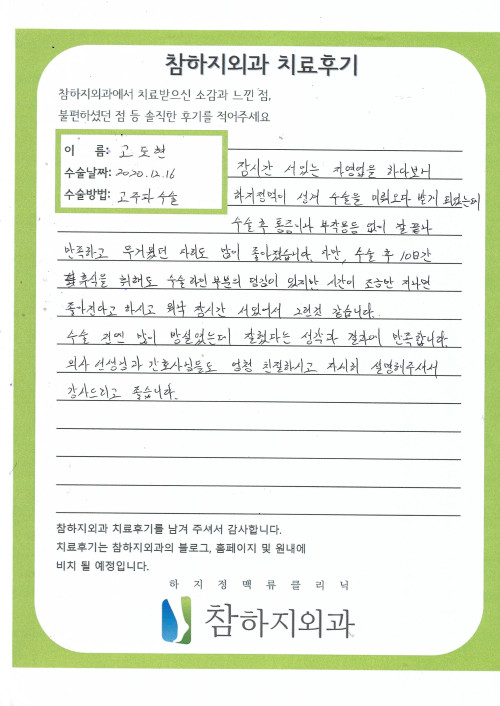 참하지외과 치료후기
참하지외과에서 치료받으신 소감과 느낀 점,
불편하셨던 점 등 솔직한 후기를 적어주세요
이 름: 고도현
수술날짜: 2020.12.16
수술방법: 고주파 수술
장시간 서있는 자영업을 하다보니
하지정맥이 생겨 수술을 미뤄오다 받게 되었는데
수술 후 통증이나 부작용등 없이 잘 끝나
만족하고 무거웠던 다리도 많이 좋아졌습니다. 다만, 수술 후 10일간
휴식을 취해도 수술하던 부분의 땅김이 있지만 시간이 조금만 지나면
좋아진다고 하시고 워낙 장시간 서있어서 그런것 같습니다.
수술 전엔 많이 망설였는데 잘했다는 생각과 결과에 만족합니다.
의사 선생님과 간호사님들도 엄청 친절하시고 자세히 설명해주셔서
감사드리고 좋습니다.
참하지외과 치료후기를 남겨 주셔서 감사합니다.
치료후기는 참하지외과의 블로그, 홈페이지 및 원내에
비치 될 예정입니다.
하지정맥류클리닉
참하지외과